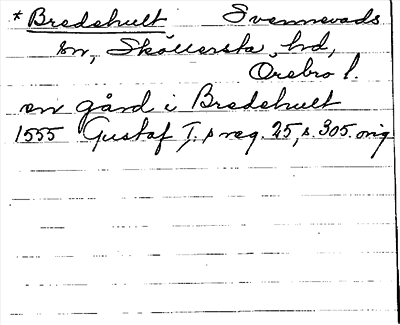 * Bredehult Svennevads
sn, Sköllersta hd,
Örebro l.
en gård i Bredehult
1555 Gustaf I:s reg. 25, s. 305. orig